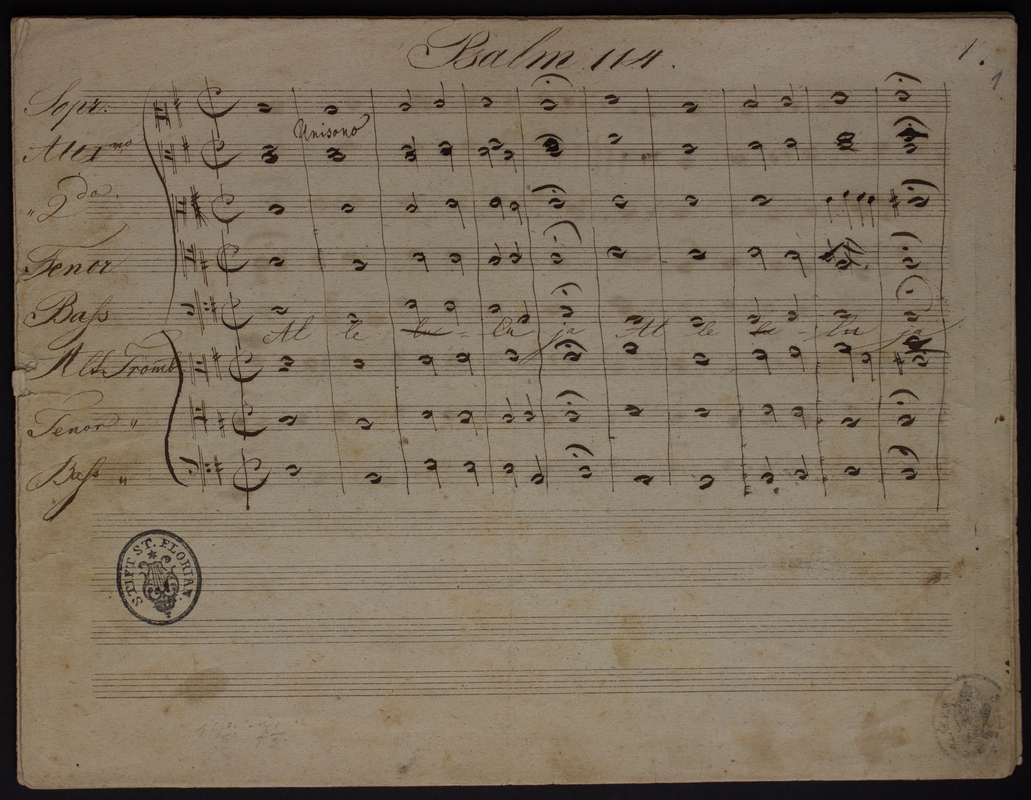 Psalm 114.
1.
1
Sopr:
Unisono
Alt 1mo
" 2do.
Tenor
Bass
Al le lu = lu ja Al le le - lu ja
Alt Tromb
Tenor "
Bass "
STIFT ST. FLORIAN.